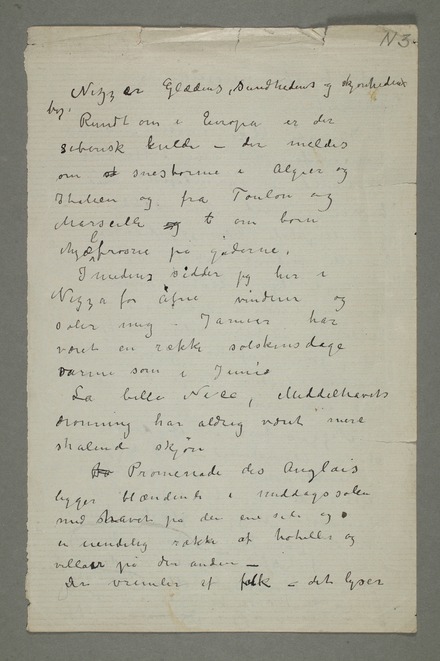 N 3.
Nizza er Glædens, sundhedens og skjønhedens
by.
Rundt om i Europa er der
siberisk kulde – der meldes
om snestorme i Algier og
Italien og fra Toulon og
Marseille om børn
ihjælfrosne på gaderne.
Imedens sidder jeg her i
Nizza for åpne vinduer og
soler mig – Januar har
været en række solskinsdage
varme som i Juni
La belle Nice, Middelhavets
dronning har aldrig været mere
stralend skjøn
Promenade des Anglais
ligger blændende i middagssolen
med havet på den ene side og
en uendelig række af hoteller og
villaer på den anden –
Der vremler af folk – det lyser